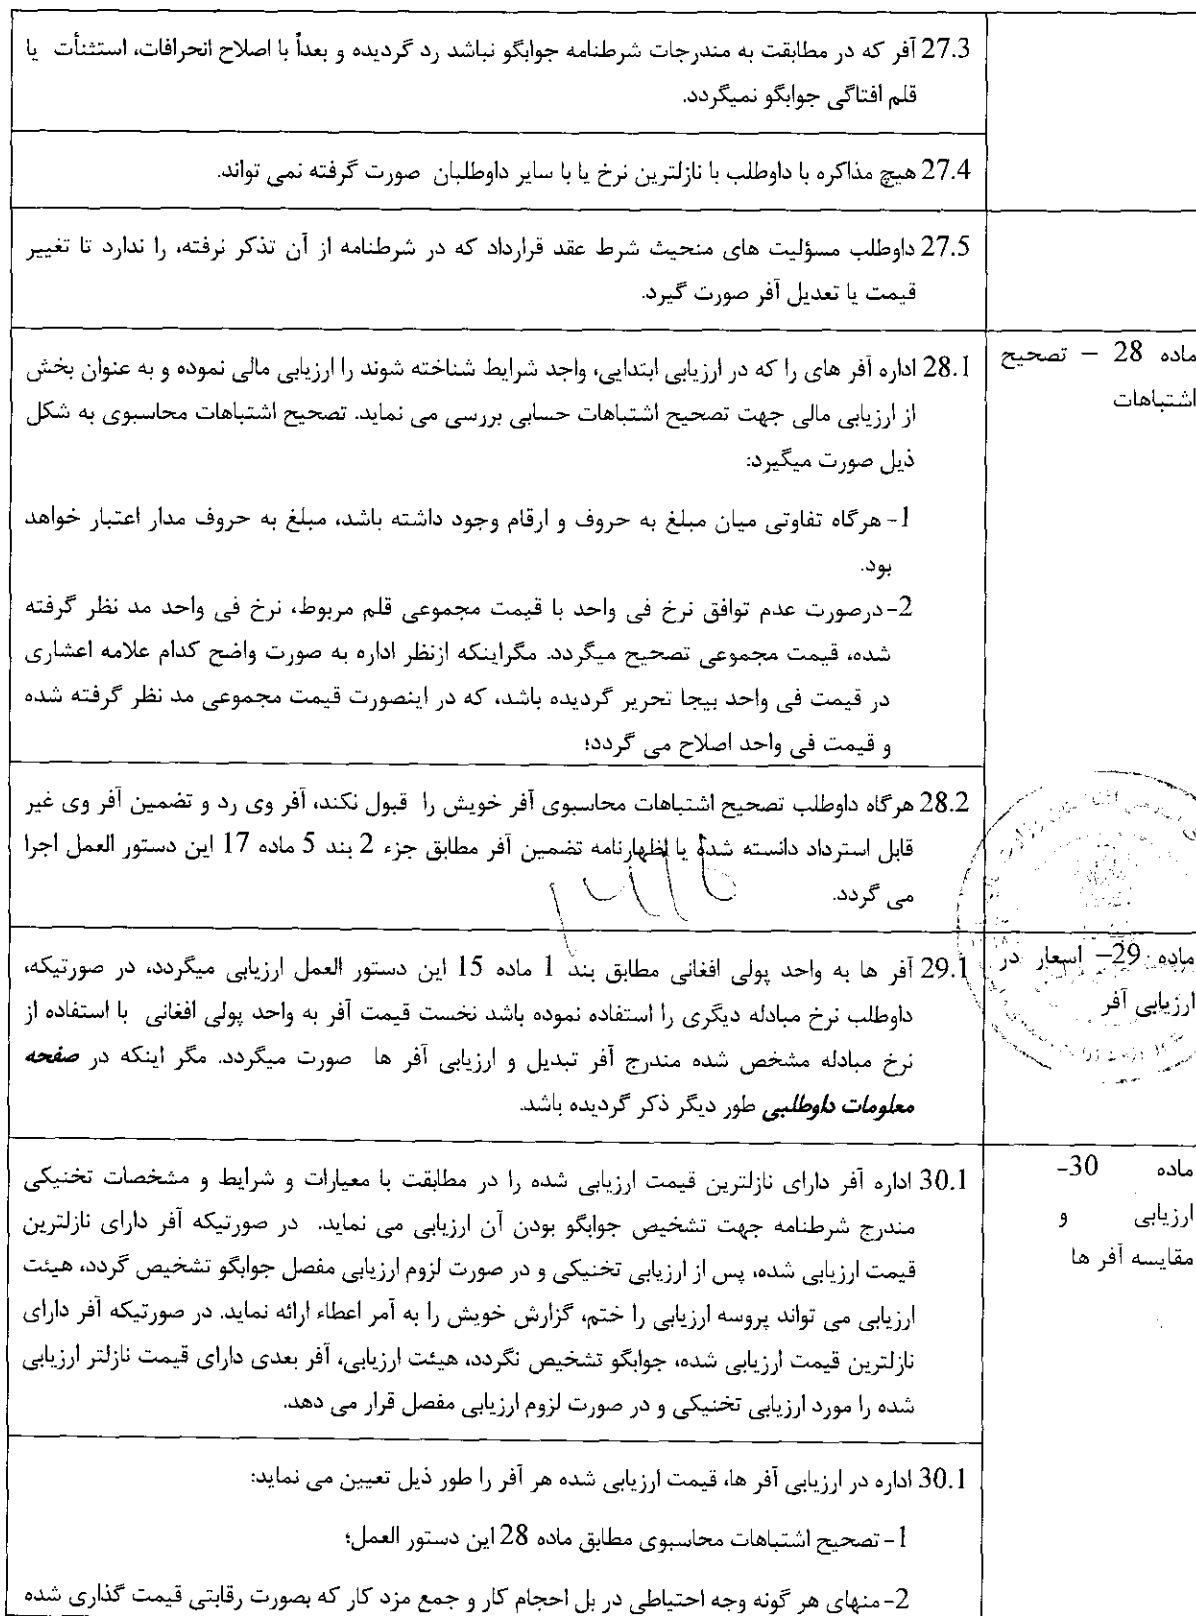 27.3 آفر که در مطابقت به مندرجات شرطنامه جوابگو نباشد رد گردیده و بعداً با اصلاح انحرافات، استثنأت یا
قلم افتاگی جوابگو نمیگردد.
27.4 هیچ مذاکره با داوطلب با نازلترین نرخ یا با سایر داوطلبان صورت گرفته نمی تواند.
27.5 داوطلب مسؤلیت های منحیث شرط عقد قرارداد که در شرطنامه از آن تذکر نرفته، را ندارد تا تغییر
قیمت یا تعدیل آفر صورت گیرد.
ماده 28 – تصحیح
اشتباهات
28.1 اداره آفر های را که در ارزیابی ابتدایی، واجد شرایط شناخته شوند را ارزیابی مالی نموده و به عنوان بخش
از ارزیابی مالی جهت تصحیح اشتباهات حسابی بررسی می نماید. تصحیح اشتباهات محاسبوی به شکل
ذیل صورت میگیرد:
1- هرگاه تفاوتی میان مبلغ به حروف و ارقام وجود داشته باشد، مبلغ به حروف مدار اعتبار خواهد
بود.
2- درصورت عدم توافق نرخ فی واحد با قیمت مجموعی قلم مربوط، نرخ فی واحد مد نظر گرفته
شده، قیمت مجموعی تصحیح میگردد. مگراینکه ازنظر اداره به صورت واضح کدام علامه اعشاری
در قیمت فی واحد بیجا تحریر گردیده باشد، که در اینصورت قیمت مجموعی مد نظر گرفته شده
و قیمت فی واحد اصلاح می گردد؛
28.2 هرگاه داوطلب تصحیح اشتباهات محاسبوی آفر خویش را قبول نکند، آفر وی رد و تضمین آفر وی غیر
قابل استرداد دانسته شده یا اظهارنامه تضمین آفر مطابق جزء 2 بند 5 ماده 17 این دستور العمل اجرا
می گردد.
ماده 29– اسعار در
ارزیابی آفر
29.1 آفر ها به واحد پولی افغانی مطابق بند 1 ماده 15 این دستور العمل ارزیابی میگردد، در صورتیکه،
داوطلب نرخ مبادله دیگری را استفاده نموده باشد نخست قیمت آفر به واحد پولی افغانی با استفاده از
نرخ مبادله مشخص شده مندرج آفر تبدیل و ارزیابی آفر ها صورت میگردد. مگر اینکه در صفحه
معلومات داوطلبی طور دیگر ذکر گردیده باشد.
ماده 30-
ارزیابی و
مقایسه آفر ها
30.1 اداره آفر دارای نازلترین قیمت ارزیابی شده را در مطابقت با معیارات و شرایط و مشخصات تخنیکی
مندرج شرطنامه جهت تشخیص جوابگو بودن آن ارزیابی می نماید. در صورتیکه آفر دارای نازلترین
قیمت ارزیابی شده، پس از ارزیابی تخنیکی و در صورت لزوم ارزیابی مفصل جوابگو تشخیص گردد، هیئت
ارزیابی می تواند پروسه ارزیابی را ختم، گزارش خویش را به آمر اعطاء ارائه نماید. در صورتیکه آفر دارای
نازلترین قیمت ارزیابی شده، جوابگو تشخیص نگردد، هیئت ارزیابی، آفر بعدی دارای قیمت نازلتر ارزیابی
شده را مورد ارزیابی تخنیکی و در صورت لزوم ارزیابی مفصل قرار می دهد.
30.1 اداره در ارزیابی آفر ها، قیمت ارزیابی شده هر آفر را طور ذیل تعیین می نماید:
1- تصحیح اشتباهات محاسبوی مطابق ماده 28 این دستور العمل؛
2- منهای هر گونه وجه احتیاطی در بل احجام کار و جمع مزد کار که بصورت رقابتی قیمت گذاری شده